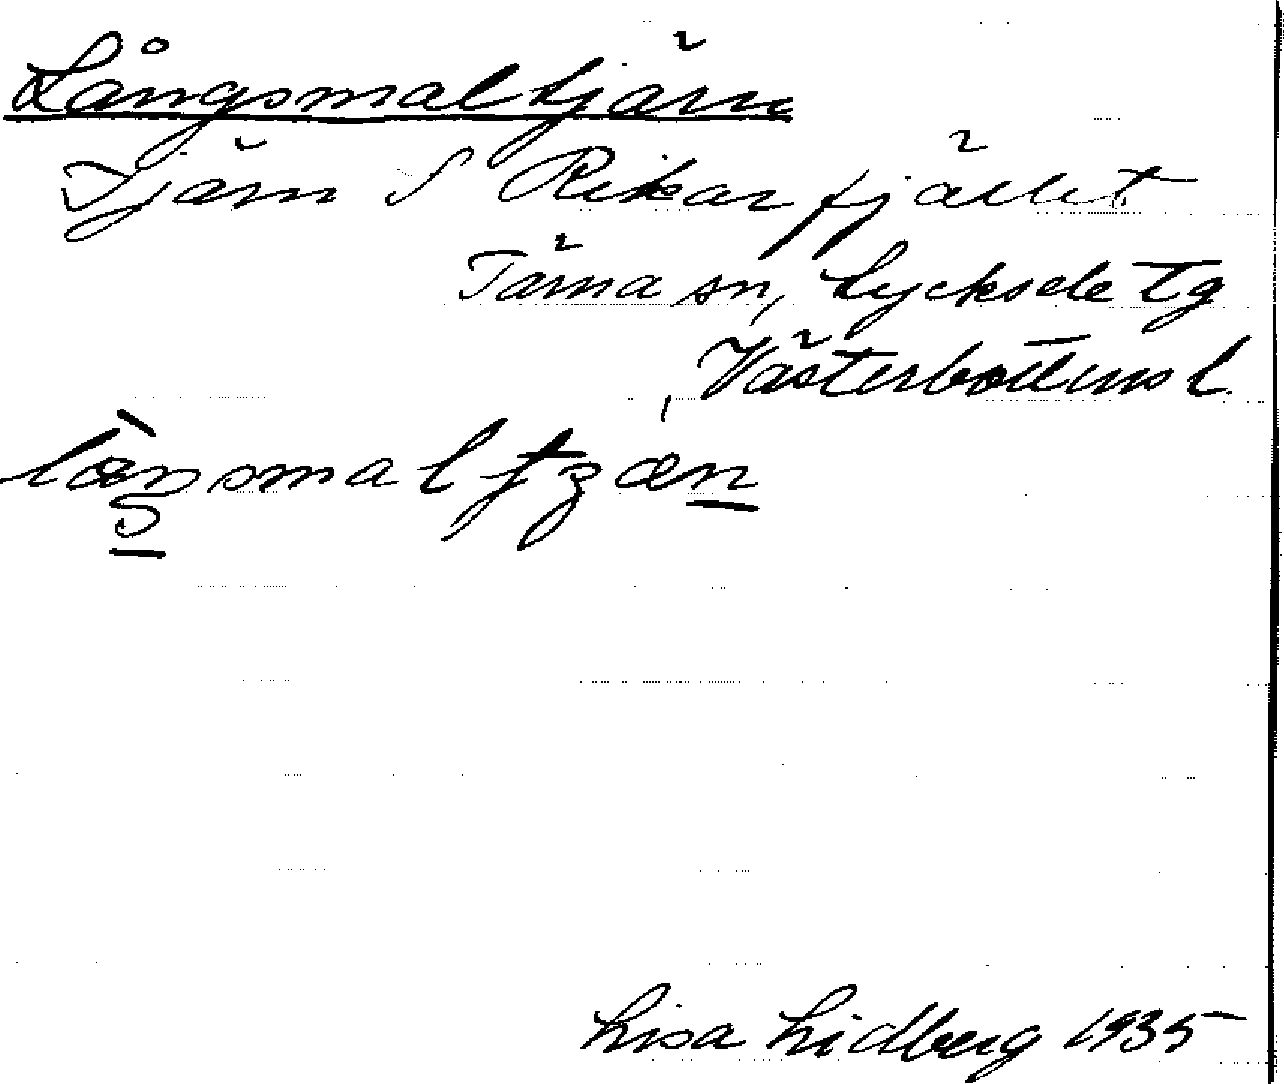 Långsmaltjärn
Tjärn S Rikarfjället
Tärna sn, Lycksele tg
Västerbottens l.
Lisa Lidberg 1935